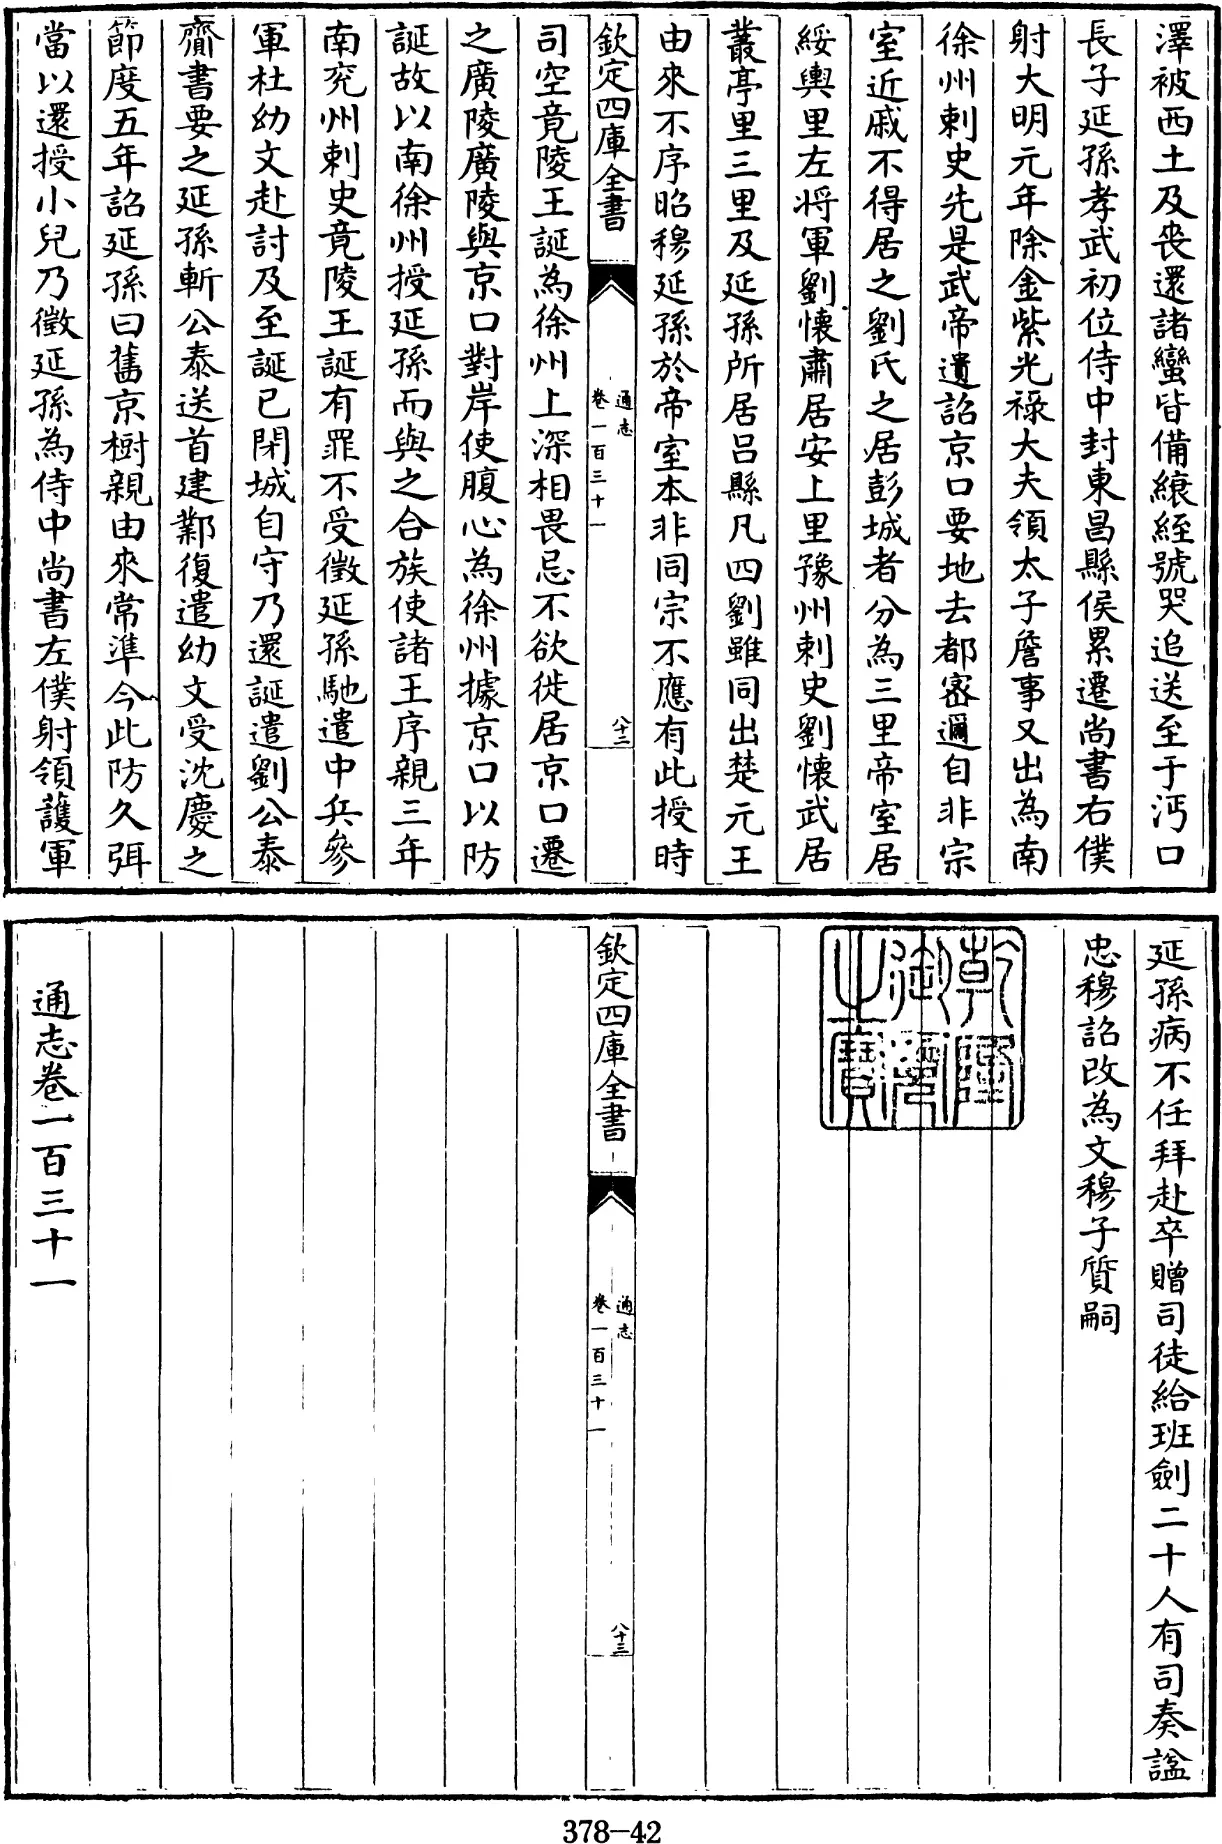 澤被西土及喪還諸蠻皆備縗絰號哭追送至于沔口
長子延孫孝武初位侍中封東昌縣侯累遷尚書右僕
射大明元年除金紫光祿大夫領太子詹事又出為南
徐州刺史先是武帝遺詔京口要地去都宻邇自非宗
室近戚不得居之劉氏之居彭城者分為三里帝室居
綏輿里左將軍劉懷肅居安上里豫州刺史劉懷武居
叢亭里三里及延孫所居呂縣凡四劉雖同出楚元王
由來不序昭穆延孫於帝室本非同宗不應有此授時
欽定四庫全書
通志
卷一百三十一
八十二
司空竟陵王誕為徐州上深相畏忌不欲徙居京口遷
之廣陵廣陵與京口對岸使腹心為徐州據京口以防
誕故以南徐州授延孫而與之合族使諸王序親三年
南兖州刺史竟陵王誕有罪不受徵延孫馳遣中兵參
軍杜幼文赴討及至誕已閉城自守乃還誕遣劉公泰
齎書要之延孫斬公泰送首建鄴復遣幼文受沈慶之
節度五年詔延孫曰舊京樹親由來常準今此防久弭
當以還授小兒乃徵延孫為侍中尚書左僕射領護軍
延孫病不任拜赴卒贈司徒給班劍二十人有司奏諡
忠穆詔改為文穆子質嗣
乾隆御覽之寶
欽定四庫全書
通志
卷一百三十一
八十三
通志卷一百三十一
378-42